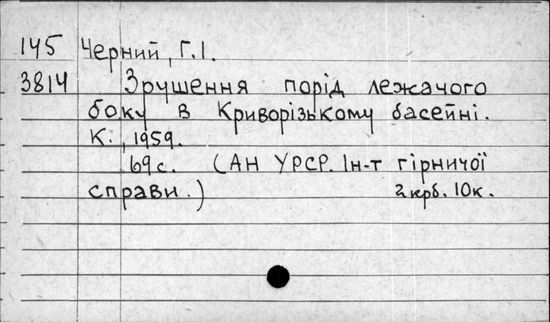 145 Черний, Г.І.
3814 Зрушення порід лежачого
боку в Криворізькому басейні.
К., 1959.
69с. (АН УРСР. Ін-т гірничої
справи.) 2 крб. 10к.